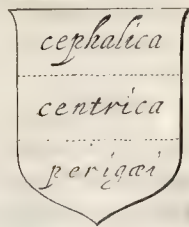 cephalica
centrica
perigæi